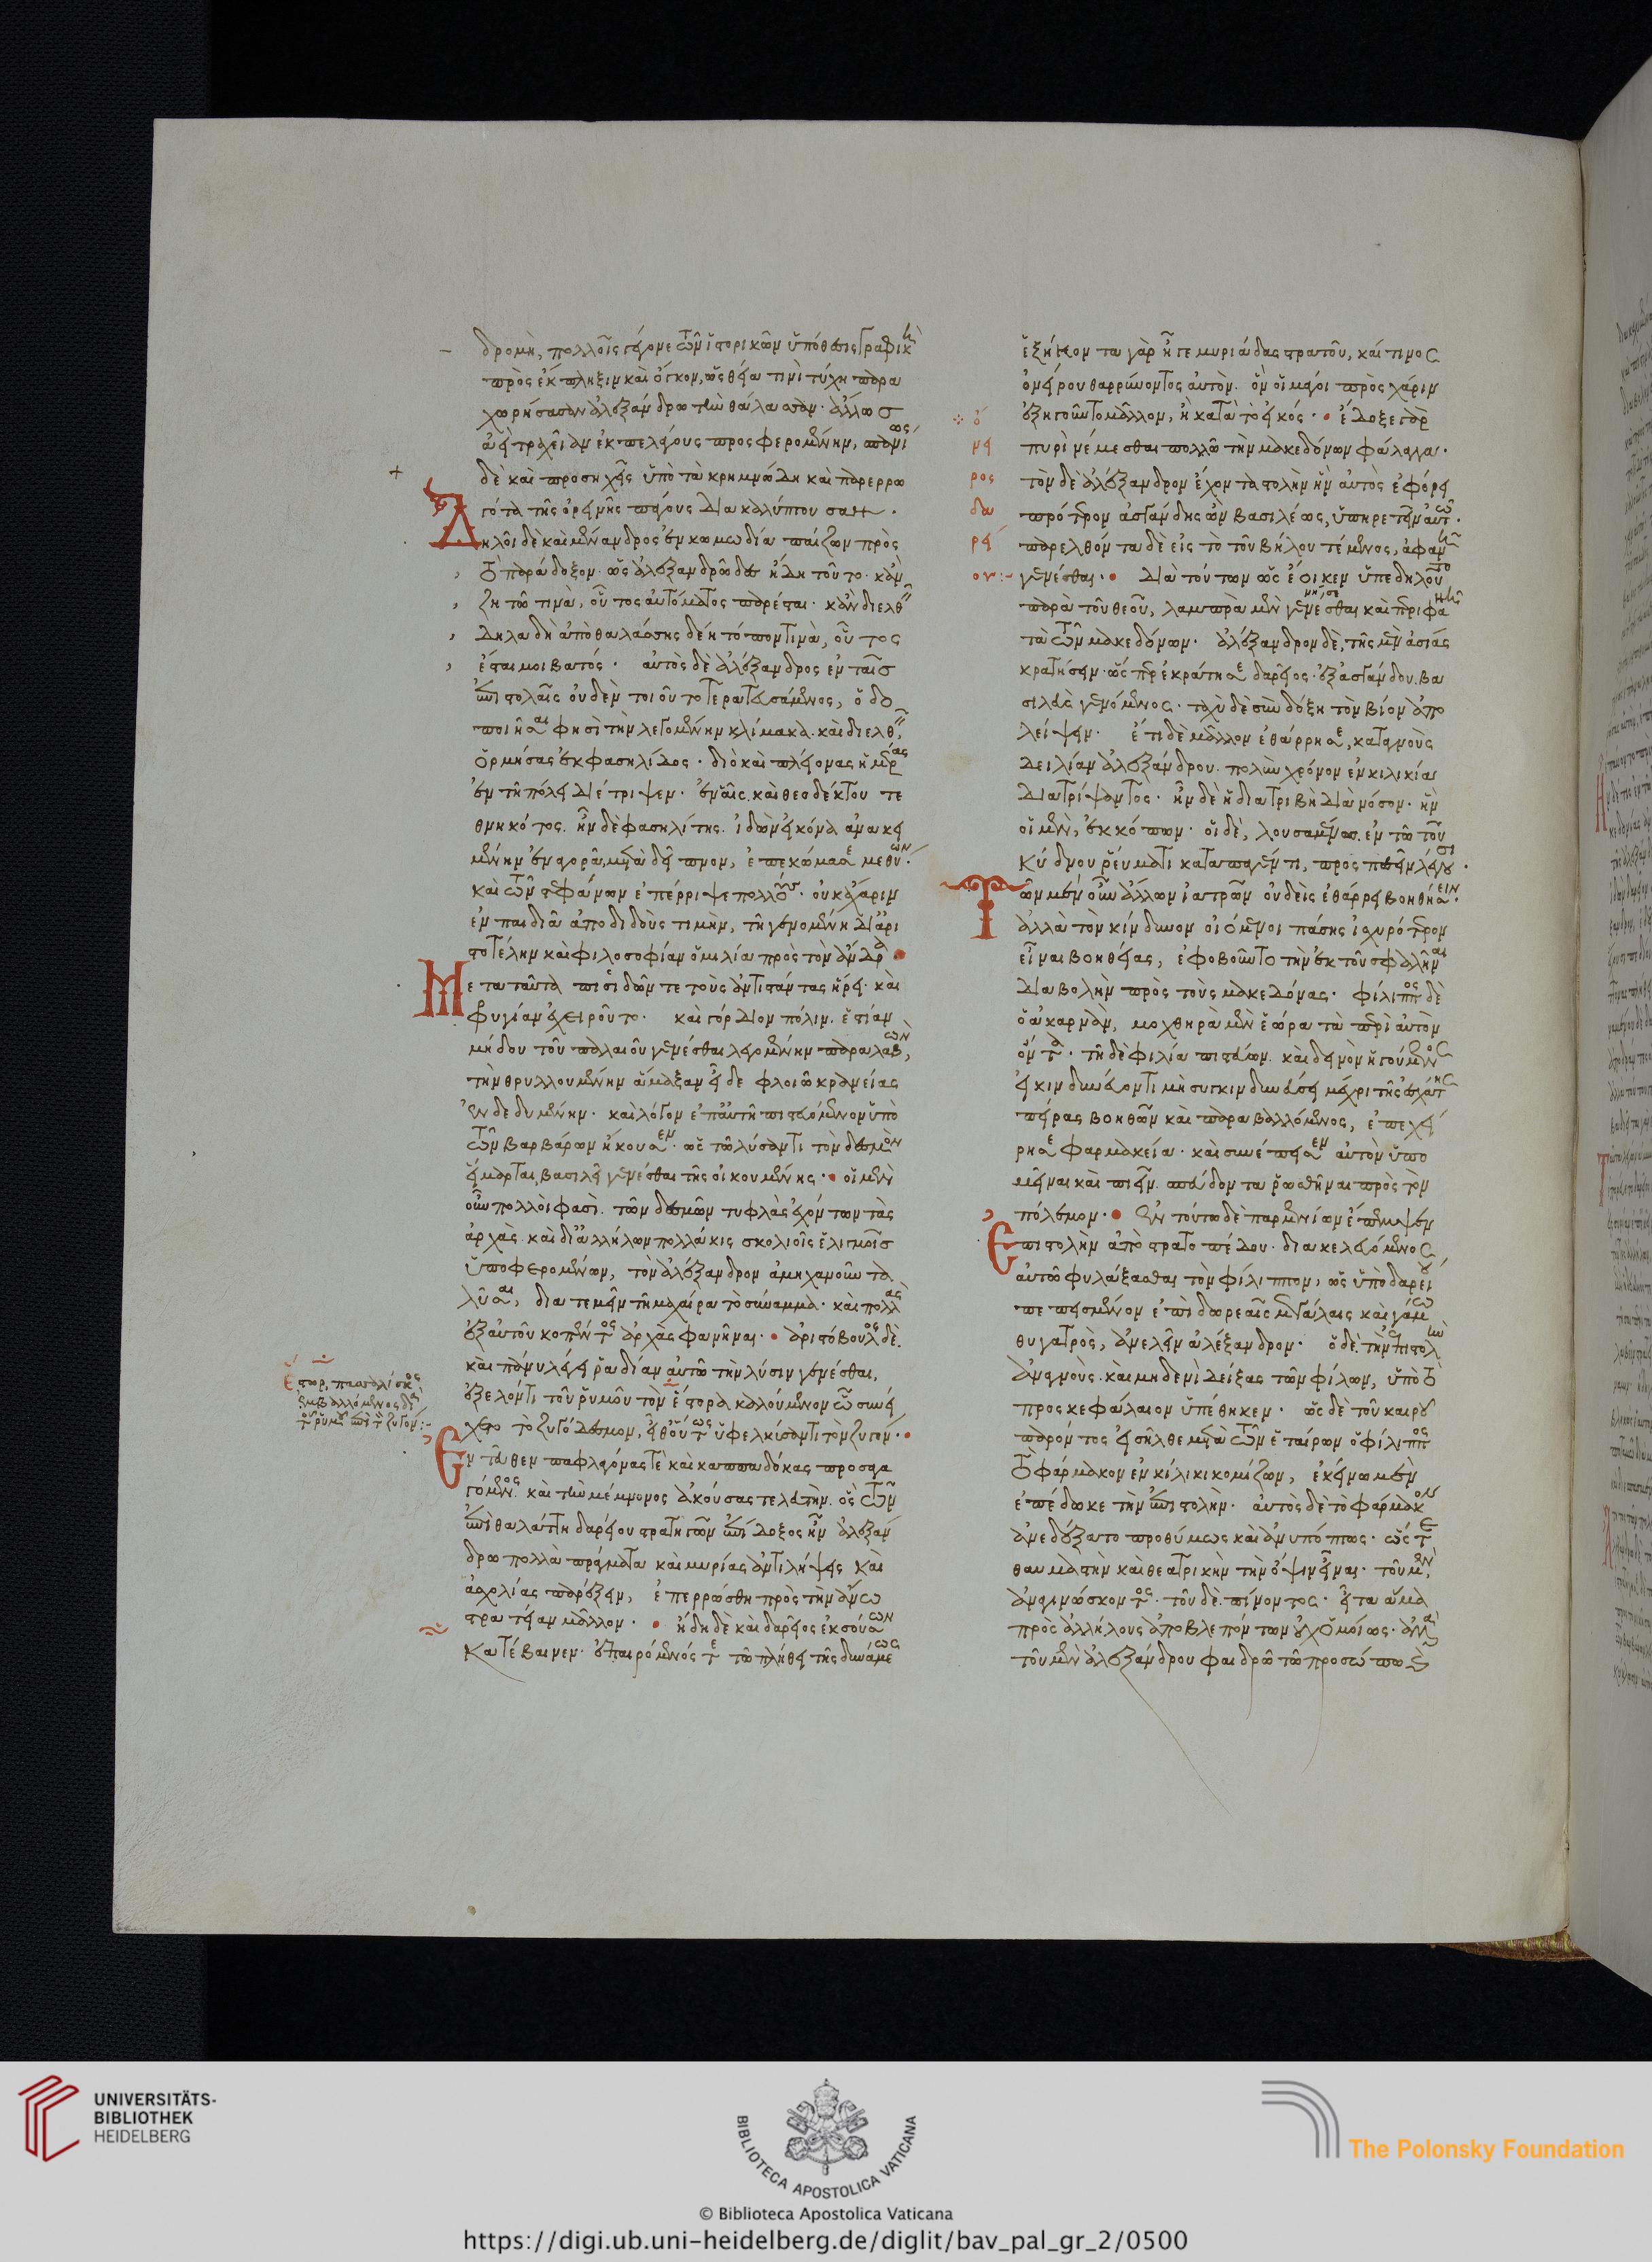 δρομὴ, πολλοῖς γέγονε τῶν ἱστορικῶν ὑπόθεσις γραφικὴ
πρὸς ἔκπληξιν καὶ ὄγκον, ὡς θείᾳ τινὶ τύχῃ παρα
χωρήσασαν ἀλεξάνδρω τὴν θάλασσαν· ἄλλως
ἀεὶ τραχεῖαν ἐκ πελάγους προσφερομένην, σπανίως
δὲ καὶ προσηχεῖς ὑπὸ τὰ κρημνώδη καὶ παρερρω
γότα τῆς ὀρεινῆς πάγους διακαλύπτουσαν.
Δηλοῖ δὲ καὶ μένανδρος ἐν κωμωδία παίζων πρὸς
τὸ παράδοξον· ὡς ἀλεξανδρῶδες ἤδη τοῦτο· κἂν
ζητῶ τινὰ, οὗτος αὐτόματος παρέσται· κἂν διελθεῖν
δηλαδὴ ἀπὸ θαλάσσης δέη τόπον τινὰ, οὗτος
ἔσται μοι βατός· αὐτὸς δὲ ἀλέξανδρος ἐν ταῖς
ἐπιστολαῖς οὐδὲν τοιοῦτο τερατευσάμενος, ὁδο
ποιῆσαι φησὶ τὴν λεγομένην κλίμακα· καὶ διελθεῖν
ὁρμήσας ἐκ φασηλίδος· διὸ καὶ πλείονας ἡμέρας
ἐν τῆ πόλει διέτριψεν· ἐν αἷς καὶ θεοδέκτου τε
θνηκότος· ἦν δὲ φασηλίτης· ἰδὼν εἰκόνα ἀνακει
μένην ἐν ἀγορᾶ, μετὰ δεῖπνον, ἐπεκώμασε μεθύων·
καὶ τῶν στεφάνων ἐπέρριψε πολλούς· οὐκ ἄχαριν
ἐν παιδιᾶ ἀποδιδοὺς τιμὴν, τῆ γενομένη δι' ἀρι
στοτέλην καὶ φιλοσοφίαν ὁμιλία πρὸς τὸν ἄνδρα
Μετὰ ταῦτα πισιδῶν τε τοὺς ἀντιστάντας ἥρει· καὶ
φρυγίαν ἐχειροῦτο· καὶ γόρδιον πόλιν· ἑστίαν
μίδου τοῦ παλαιοῦ γενέσθαι λεγομένην παραλαβὼν,
τὴν θρυλλουμένην ἅμαξαν εἶδε φλοιῶ κρανείας
ἐνδεδυμένην· καὶ λόγον ἐπ' αὐτῆ πιστευόμενον ὑπὸ
τῶν βαρβάρων ἤκουσεν· ὡς τῶ λύσαντι τὸν δεσμὸν
εἵμαρται βασιλεῖ γενέσθαι τῆς οἰκουμένης· οἱ μὲν
οὖν πολλοὶ φασὶ· τῶν δεσμῶν τυφλὰς ἐχόντων τὰς
ἀρχὰς· καὶ δι' ἀλλήλων πολλάκις σκολιοῖς ἑλιγμοῖς
ὑποφερομένων, τὸν ἀλέξανδρον ἀμηχανοῦντα
λῦσαι, διατεμεῖν τῆ μαχαίρα τὸ σύναμμα· καὶ πολλὰς
ἐξ αὐτοῦ κοπέντος ἀρχὰς φανῆναι· ἀριστόβουλος δὲ
καὶ πάνυ λέγει ῥαδίαν αὐτῶ τὴν λύσιν γενέσθαι,
ἐξελόντι τοῦ ῥυμοῦ τὸν ἕστορα καλούμενον ὧ συνεί
χετο τὸ ζυγόδεσμον, εἶθ' οὕτως ὑφελκύσαντι τὸν ζυγόν·
Ἐντεῦθεν παφλαγόνας τὲ καὶ καππαδόκας προσαγα
γόμενος· καὶ τὴν μέμνονος ἀκούσας τελευτὴν· ὃς τῶν
ἐπὶ θαλάττη δαρείου στρατηγῶν ἐπίδοξος ἦν ἀλεξάν
δρω πολλὰ πράγματα καὶ μυρίας ἀντιλήψεις καὶ
ἀσχολίας παρέξειν, ἐπερρώσθη πρὸς τὴν ἄνω
στρατείαν μᾶλλον· ἤδη δὲ καὶ δαρεῖος ἐκ σούσων
κατέβαινεν· ἐπαιρόμενός τε τῶ πλήθει τῆς δυνάμεως
ἕστωρ, πασσαλίσκος
ἐμβαλλόμενος διὰ
τοῦ ῥυμοῦ ἐπὶ τὸν ζυγόν:-
ἑξήκοντα γὰρ ἦγε μυριάδας στρατοῦ, καί τινος
ὀνείρου θαρρύνοντος αὐτὸν· ὃν οἱ μάγοι πρὸς χάριν
ἐξηγοῦντο μᾶλλον, ἢ κατὰ τὸ εἰκός· ἔδοξε γὰρ
πυρὶ νέμεσθαι πολλῶ τὴν μακεδόνων φάλαγγα·
τὸν δὲ ἀλέξανδρον ἔχοντα στολὴν ἣν αὐτὸς ἐφόρει
πρότερον ἀστάνδης ὢν βασιλέως, ὑπηρετεῖν αὐτῶ·
παρελθόντα δὲ εἰς τὸ τοῦ βήλου τέμενος, ἀφανῆ
γενέσθαι· διὰ τούτων ὡς ἔοικεν ὑπεδηλοῦτο
παρὰ τοῦ θεοῦ, λαμπρὰ μὲν γενήσεσθαι καὶ περιφανῆ
τὰ τῶν μακεδόνων· ἀλέξανδρον δὲ, τῆς μὲν ἀσίας
κρατήσειν· ὥσπερ ἐκράτησε δαρεῖος· ἐξ ἀστάνδου βα
σιλεὺς γενόμενος· ταχὺ δὲ σὺν δόξη τὸν βίον ἀπο
λείψειν· ἔτι δὲ μᾶλλον ἐθάρρησε, καταγνοὺς
δειλίαν ἀλεξάνδρου· πολὺν χρόνον ἐν κιλικία
διατρίψαντος· ἦν δὲ ἡ διατριβὴ διὰ νόσον· ἣν
οἱ μὲν, ἐκ κόπων· οἱ δὲ, λουσαμένω ἐν τῶ τοῦ
κύδνου ῥεύματι καταπαγέντι, προσπεσεῖν λέγουσι·
Τῶν μὲν οὖν ἄλλων ἰατρῶν οὐδεὶς ἐθάρρει βοηθήσειν·
ἀλλὰ τὸν κίνδυνον οἰόμενοι πάσης ἰσχυρότερον
εἶναι βοηθείας, ἐφοβοῦντο τὴν ἐκ τοῦ σφαλῆναι
διαβολὴν πρὸς τοὺς μακεδόνας· φίλιππος δὲ
ὁ ἀκαρνὰν, μοχθηρὰ μὲν ἑώρα τὰ περὶ αὐτὸν
ὄντα· τῆ δὲ φιλία πιστεύων· καὶ δεινὸν ἡγούμενος
εἰ κινδυνεύοντι μὴ συγκινδυνεύσει μέχρι τῆς ἐσχάτης
πείρας βοηθῶν καὶ παραβαλλόμενος, ἐπεχεί
ρησε φαρμακεία· καὶ συνέπεισεν αὐτὸν ὑπο
μεῖναι καὶ πιεῖν σπεύδοντα ῥωσθῆναι πρὸς τὸν
πόλεμον· Ἐν τούτω δὲ παρμενίων ἔπεμψεν
ἐπιστολὴν ἀπὸ στρατοπέδου· διακελευόμενος
αὐτῶ φυλάξασθαι τὸν φίλιππον, ὡς ὑπὸ δαρείου
πεπεισμένον ἐπὶ δωρεαῖς μεγάλαις καὶ γάμω
θυγατρὸς, ἀνελεῖν ἀλέξανδρον· ὁ δὲ τὴν ἐπιστολὴν
ἀναγνοὺς· καὶ μηδενὶ δείξας τῶν φίλων, ὑπὸ τὸ
προσκεφάλαιον ὑπέθηκεν· ὡς δὲ τοῦ καιροῦ
παρόντος εἰσῆλθε μετὰ τῶν ἑταίρων ὁ φίλιππος
τὸ φάρμακον ἐν κύλικι κομίζων, ἐκείνω μὲν
ἐπέδωκε τὴν ἐπιστολὴν· αὐτὸς δὲ τὸ φάρμακον
ἀνεδέξατο προθύμως καὶ ἀνυπόπτως· ὥστε
θαυμαστὴν καὶ θεατρικὴν τὴν ὄψιν εἶναι· τοῦ μὲν,
ἀναγινώσκοντος· τοῦ δὲ πίνοντος· εἶτα ἅμα
πρὸς ἀλλήλους ἀποβλεπόντων οὐχ ὁμοίως· ἀλλὰ
τοῦ μὲν ἀλεξάνδρου φαιδρῶ τῶ προσώπω καὶ
ὀ
νεί
ρος
δα
ρεί
ου:-
UNIVERSITÄTS-
BIBLIOTHEK
HEIDELBERG
BIBLIOTECA APOSTOLICA VATICANA
© Biblioteca Apostolica Vaticana
The Polonsky Foundation
https://digi.ub.uni-heidelberg.de/diglit/bav_pal_gr_2/0500